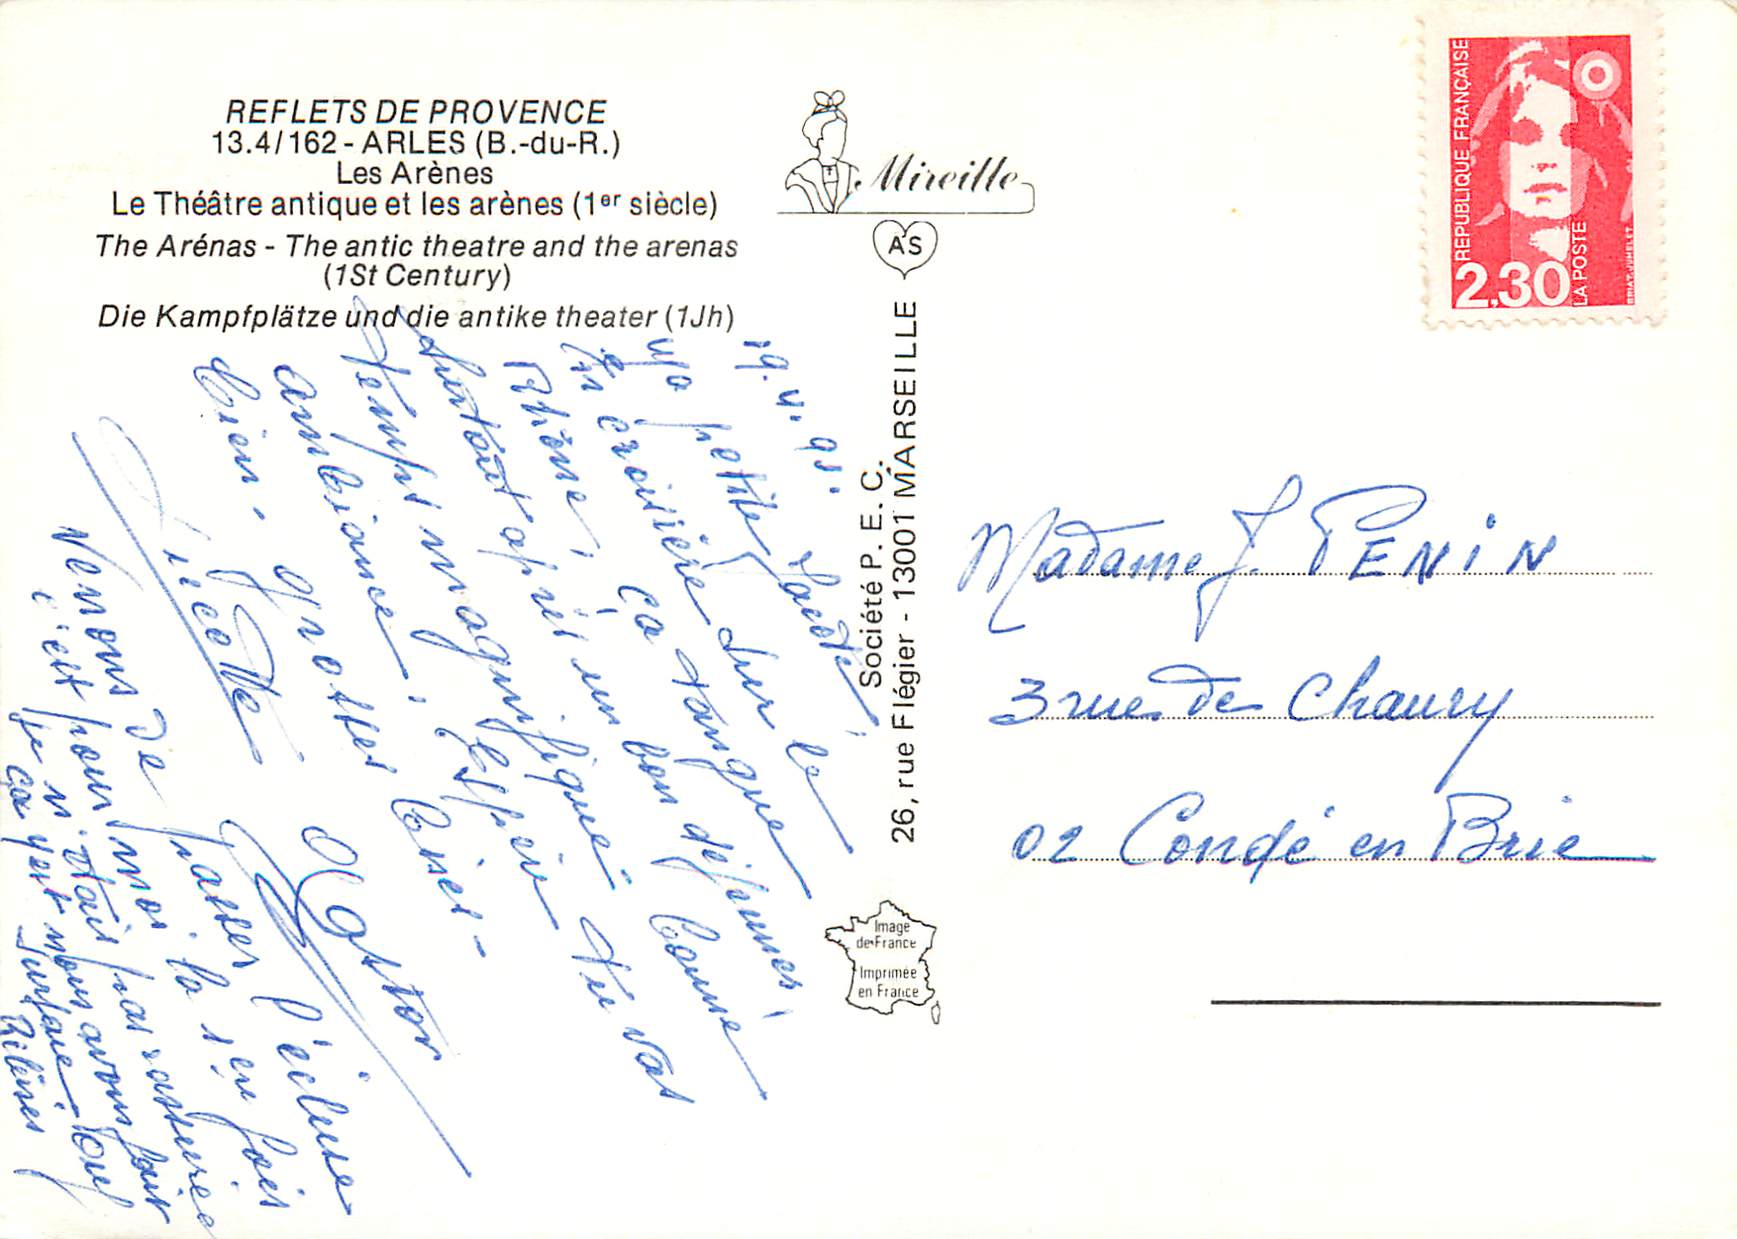 REFLETS DE PROVENCE
13.4/162 - ARLES (B.-du-R.)
Les Arènes
Le Théâtre antique et les arènes (1er siècle)
The Arénas - The antic theatre and the arenas
(1St Century)
Die Kampfplätze und die antike theater (1Jh)
Mireille
AS
Société P. E. C.
26, rue Flégier - 13001 MARSEILLE
Image
de France
Imprimée
en France
REPUBLIQUE FRANÇAISE
2,30
LA POSTE
BRIAT-JUMELET
19. V. 91.
Ma petite
En croisière sur le
Rhône, ça tangue
surtout après un bon déjeuner,
temps magnifique bonne
ambiance, j'espère tu vas
bien. grosses bises -
Ginette
Venons de passer l'écluse
c'est pour moi la 1ère fois
je n'étais pas rassurée
ça y est nous avons fait
surface - ouf
Bises
Madame J. PENIN
3 rue de Chaury
02 Condé en Brie